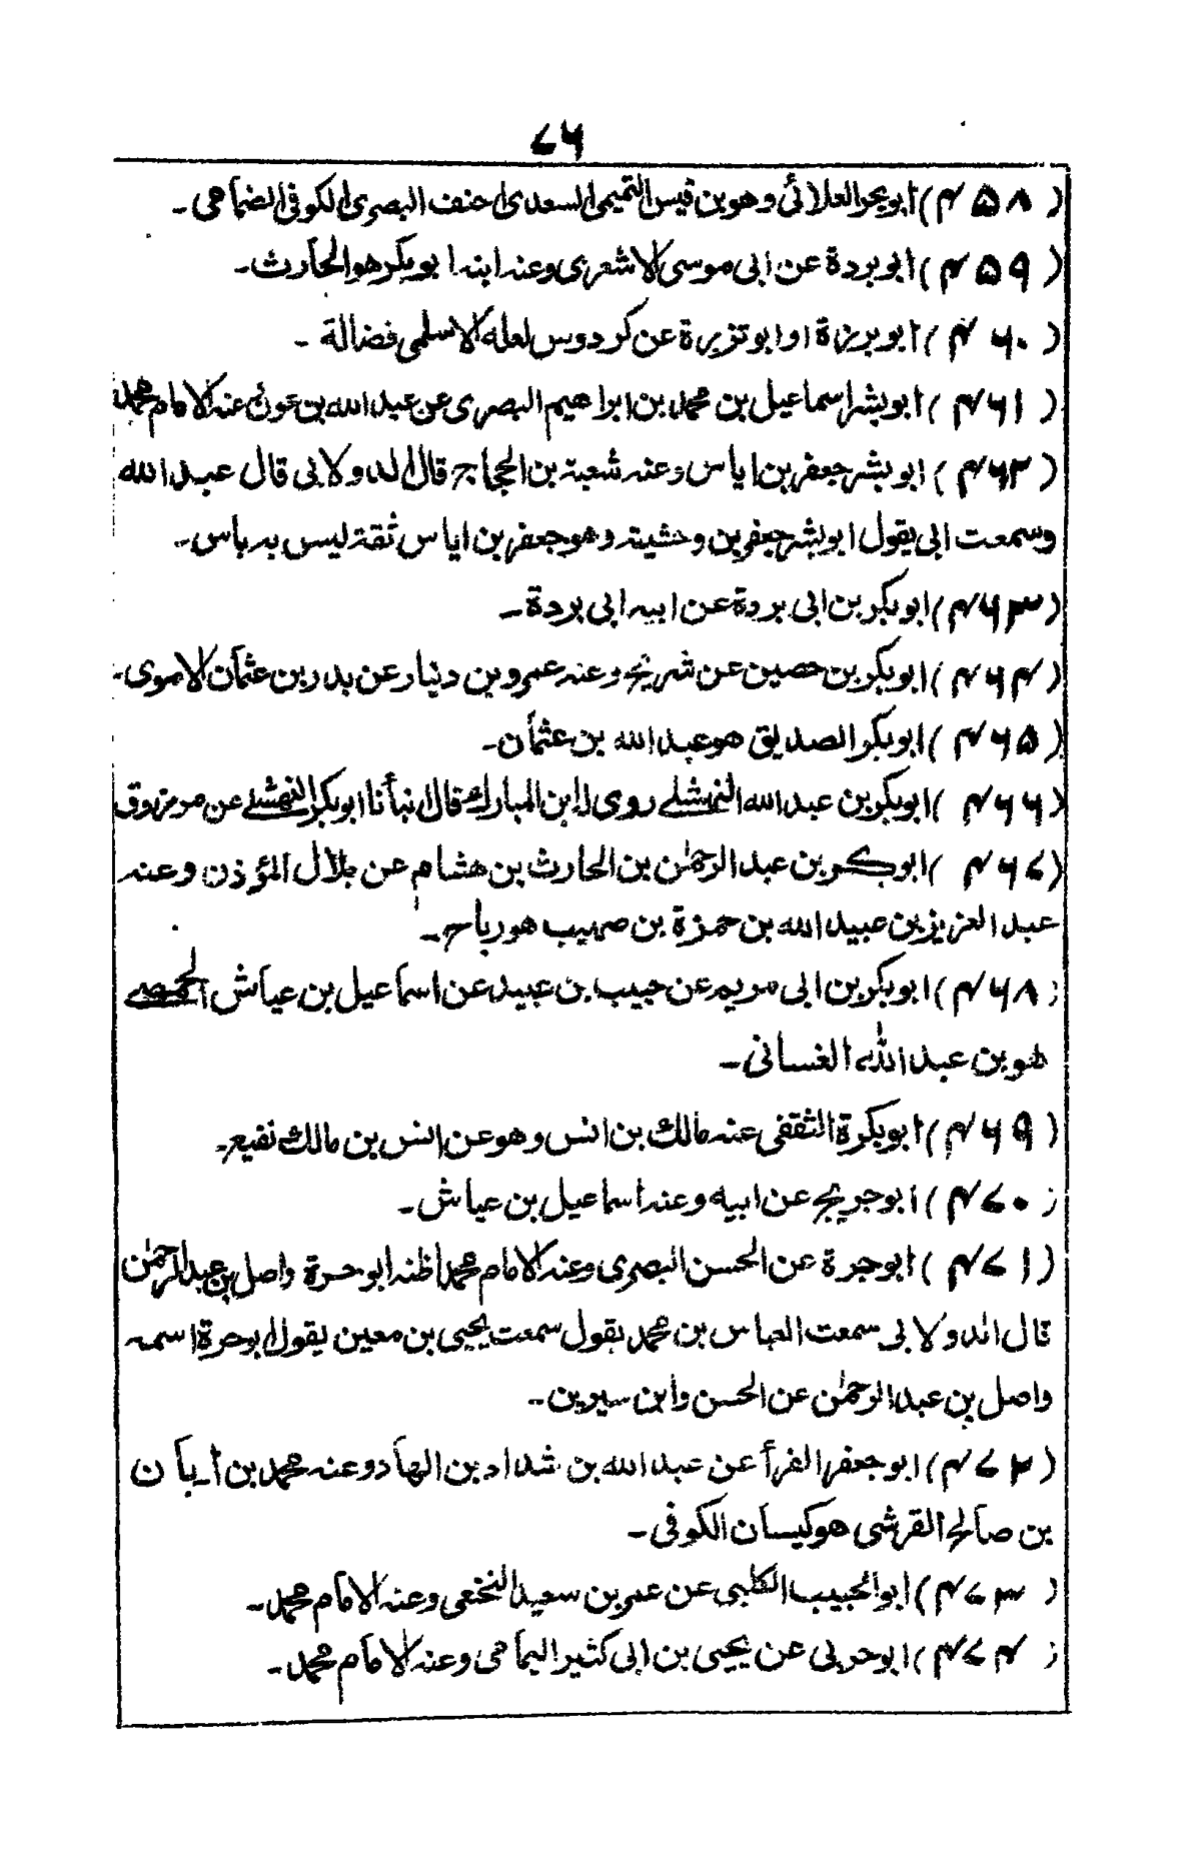 ۷۶
(۴۵۸) ابو بحر العلائی وهو بن قیس التمیمی السعدی احنف البصری الکوفی الضحاک۔
(۴۵۹) ابو بردة عن ابی موسی الاشعری وعنه ابنه ابو بکر هو الحارث۔
(۴۶۰) ابو برزة او ابو تزبرة عن کردوس لعله الاسلمی فضالة۔
(۴۶۱) ابو بشر اسماعیل بن محمد بن ابراهیم البصری عن عبد الله بن عون عنه الامام محمد
(۴۶۲) ابو بشر جعفر بن ایاس وعنه شعبة بن الحجاج قال الدولابی قال عبد الله
وسمعت ابی یقول ابو بشر جعفر بن وحشیة وهو جعفر بن ایاس ثقة لیس به باس۔
(۴۶۳) ابو بکر بن ابی بردة عن ابیه ابی بردة۔
(۴۶۴) ابو بکر بن حصین عن شریح وعنه عمرو بن دینار عن بدر بن عثمان الاموی۔
(۴۶۵) ابو بکر الصدیق هو عبد الله بن عثمان۔
(۴۶۶) ابو بکر بن عبد الله النهشلے روی له ابن المبارک قال انبأنا ابو بکر النهشلے عن مرزوق
(۴۶۷) ابو بکر بن عبد الرحمٰن بن الحارث بن هشام عن بلال المؤذن وعنه
عبد العزیز بن عبید الله بن حمزة بن صهیب هو رباح۔
(۴۶۸) ابو بکر بن ابی مریم عن حبیب بن عبید عن اسماعیل بن عیاش الحمصے
هو بن عبد الله الغسانی۔
(۴۶۹) ابو بکرة الثقفی عنه مالک بن انس وهو عن انس بن مالک نفیع۔
(۴۷۰) ابو جریج عن ابیه وعنه اسماعیل بن عیاش۔
(۴۷۱) ابو جرة عن الحسن البصری وعنه الامام محمد اظنه ابو حرة واصل بن عبد الرحمٰن
قال الدولابی سمعت العباس بن محمد یقول سمعت یحیی بن معین یقول ابو حرة اسمه
واصل بن عبد الرحمٰن عن الحسن وابن سیرین۔
(۴۷۲) ابو جعفر الفرأ عن عبد الله بن شداد بن الهاد وعنه محمد بن أبان
بن صالح القرشی هو کیسان الکوفی۔
(۴۷۳) ابو الحبیب الکلبی عن عمر بن سعید النخعی وعنه الامام محمد۔
(۴۷۴) ابو حربی عن یحیی بن ابی کثیر الیمامی وعنه الامام محمد۔